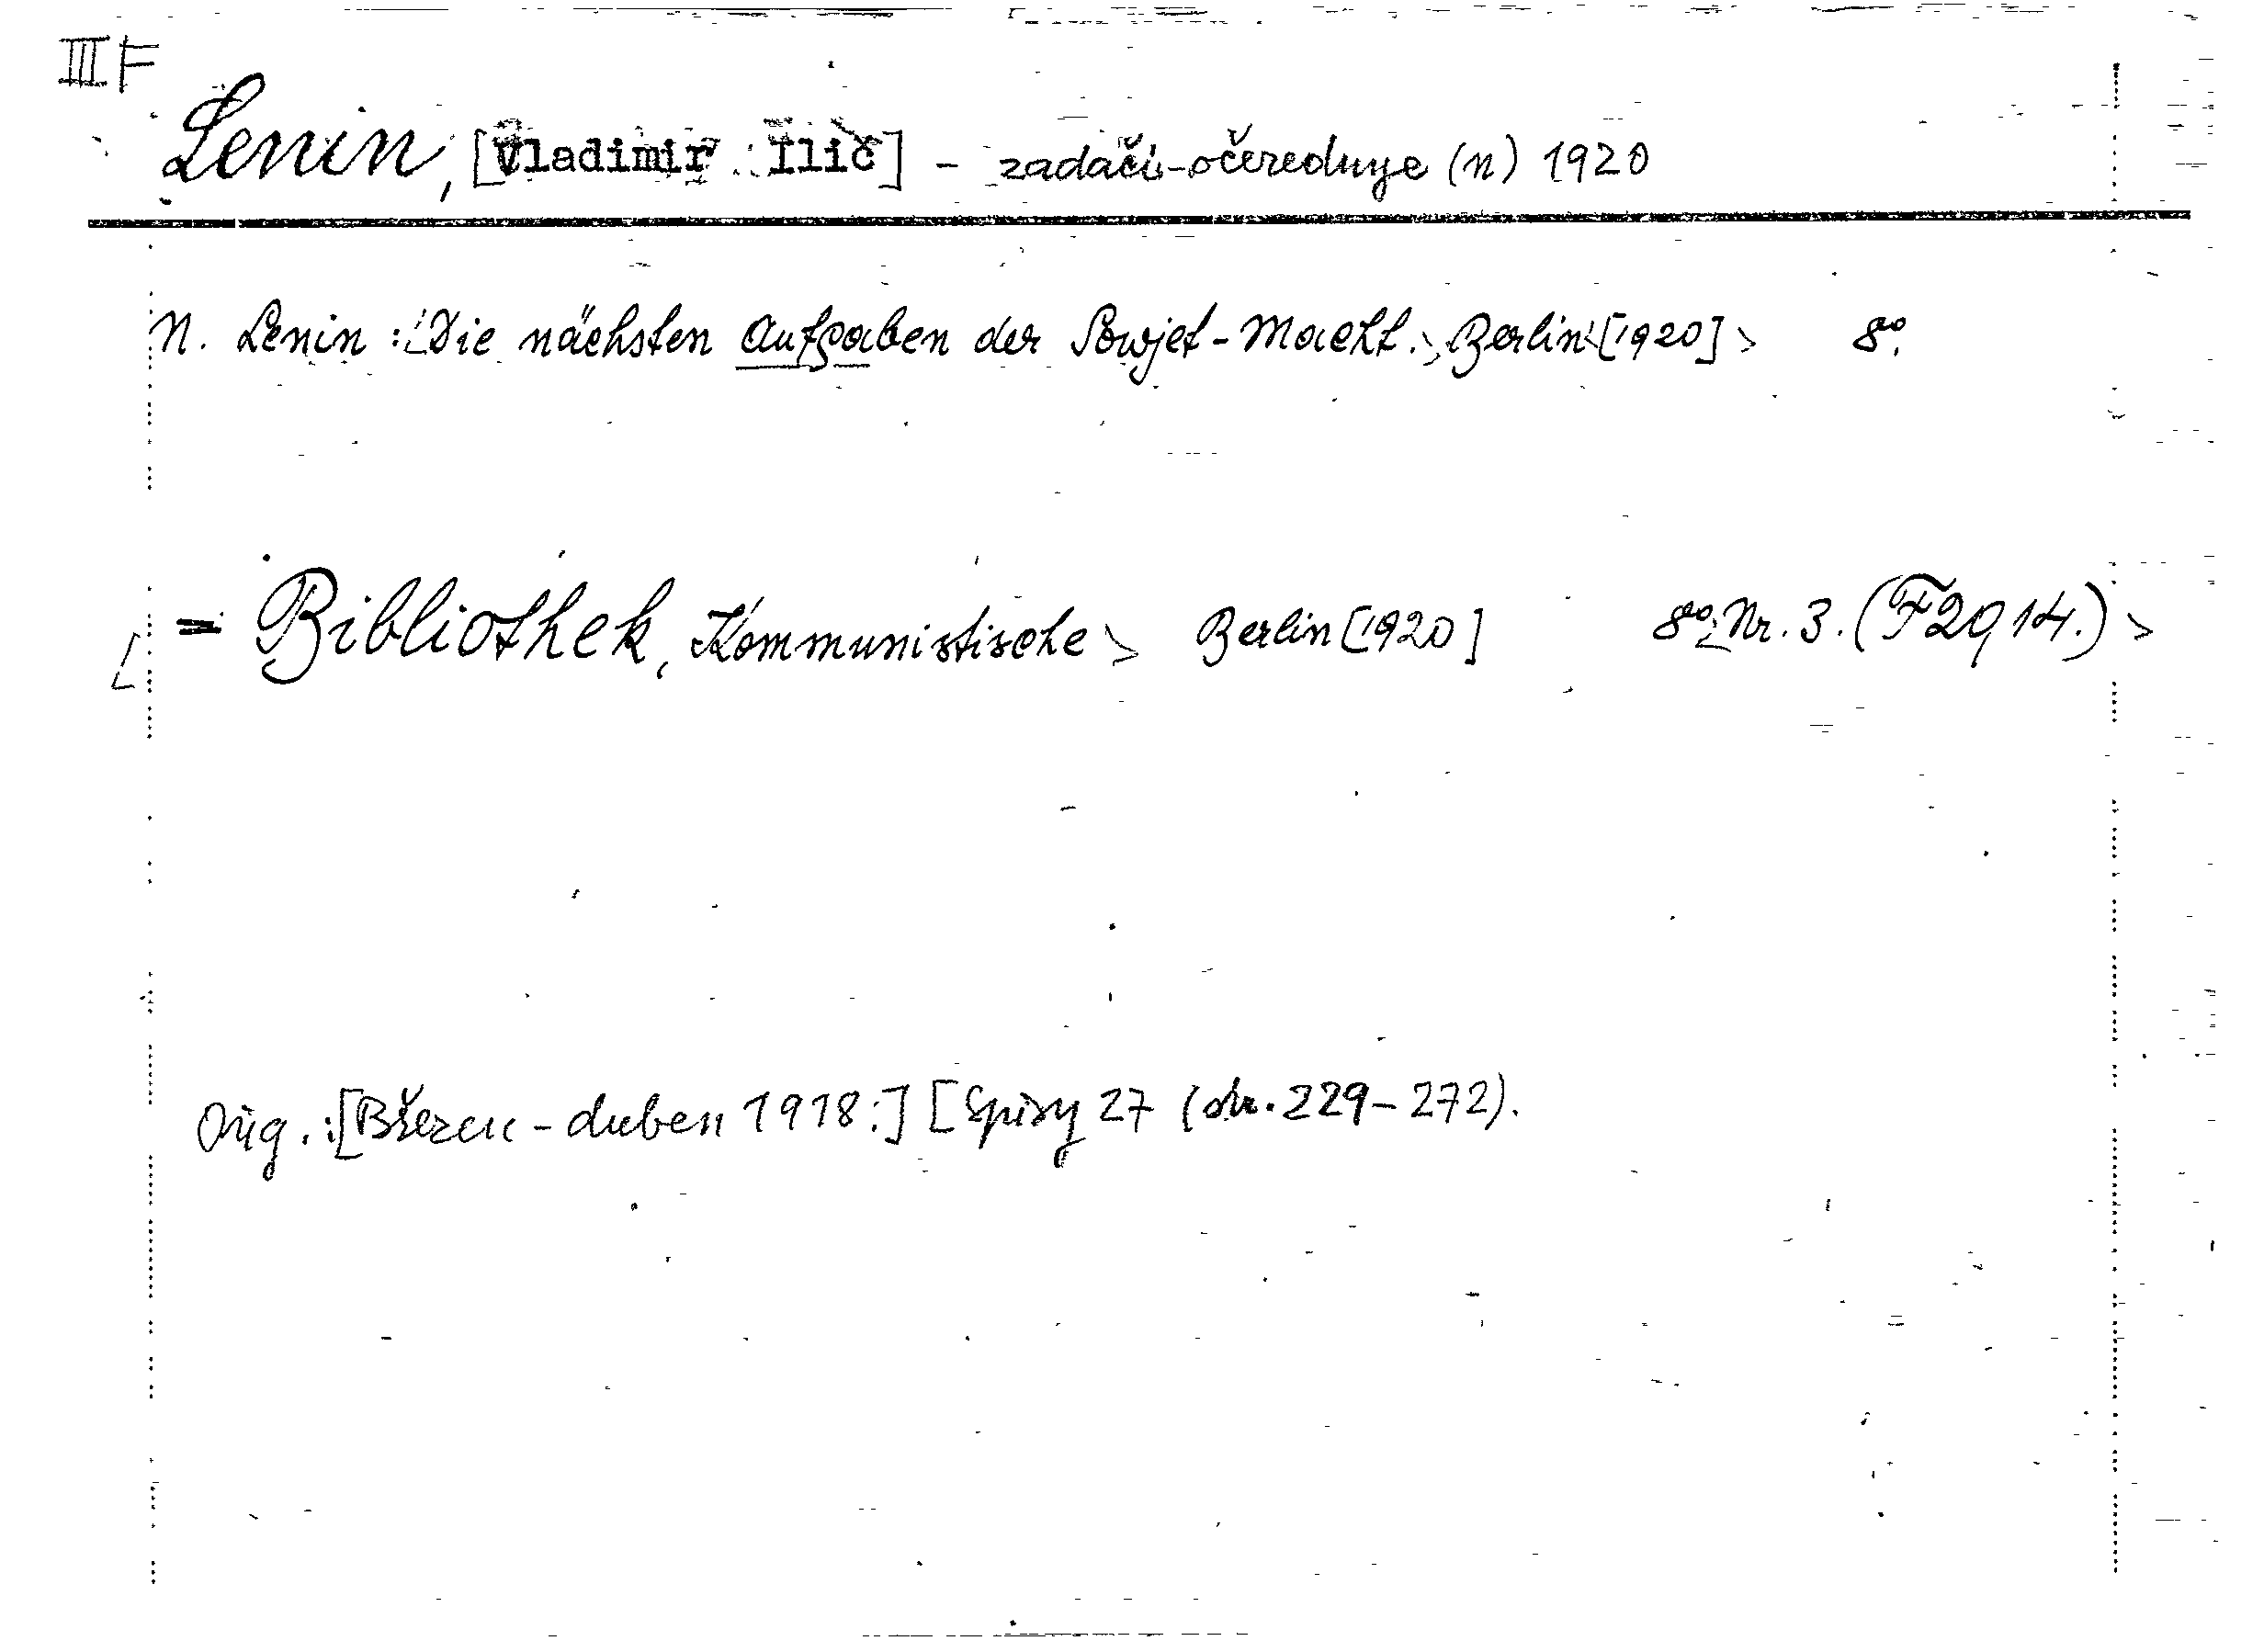 III F
Lenin, [Vladimir Ilič] - zadači-očerednye (n) 1920
N. Lenin: Die nächsten Aufgaben der Sowjet-Macht. Berlin [1920] 8°.
[= Bibliothek, Kommunistische Berlin [1920] 8°. Nr. 3. (F 29 14.)
Orig.: [Březen - duben 1918.] [Spisy 27 (str. 229-272).